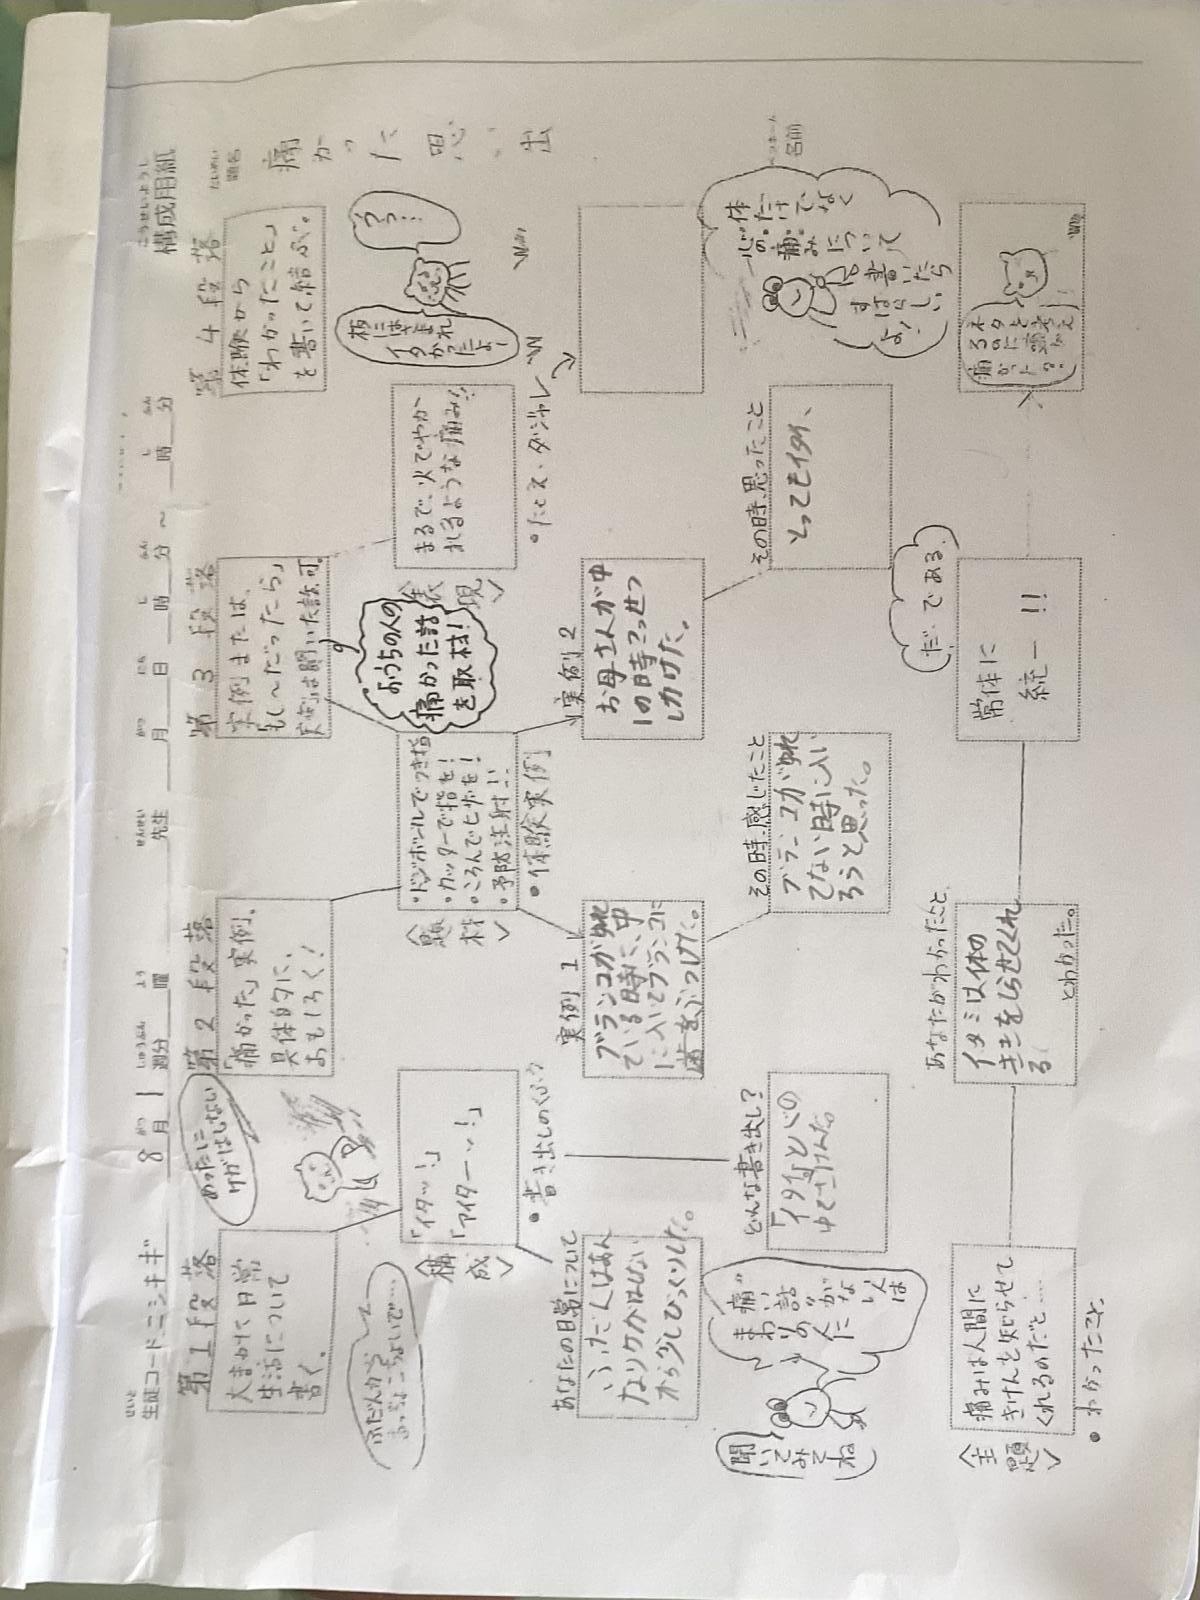 構成用紙
こうせいようし
題名
だいめい
痛かった思い出
名前
ペンネーム
生徒コード ニシキギ
せいと
8月1週分
がつ
しゅうぶん
曜
よう
先生
せんせい
月 日 時 分 ～ 時 分
がつ にち じ ふん じ ふん
第1段落
大まかに日常
生活について
書く。
めったに
ケガはしない
ふだんから
あっちょこちょいで……
第2段落
「痛かった」実例。
具体的に、
おもしろく！
第3段落
実例または、
「もし～だったら」
実例は聞いた話許可。
第4段落
体験から
「わかったこと」
を書いて結ぶ。
うっ！
柄にはさまれ
イタかったよー
〈構成〉
「イタッ！」
「アイターッ！」
・書き出しのくふう
〈題材〉
・ドッジボールでつき指
・カッターで指を！
・ころんでヒザを！
・予防注射！！
・体験実例
おうちの人の
痛かった話
を取材！
〈表現〉
まるで、火でやか
れるような痛み！！
・たとえ・ダジャレ
あなたの日常について
いっ、ただんはあん
なりケガはしない
から少しびっくりした。
どんな書き出し？
「イタイ」と心の
中でさけんだ
実例1
ブランコがゆれ
ている時に、中
に入いてブランコに
歯をぶつけた。
その時、感じたこと
ブランコがゆれ
てない時に入い
ろうと思った。
実例2
お母さんが中
1の時こっせつ
しかけた。
その時、思ったこと
とってもイタイ、
聞いてみてね
まわりの人は
“痛い話”がない
体だけでなく
心の痛みについて
も書いたら
すばらしい
よ！
〈主題〉
痛みは人間に
きけんを知らせて
くれるのだと……
・わかったこと
あなたがわかったこと
イタミは体の
ききをしらせてくれ
る
とわかった。
常体に
統一！！
だ・である
ネタを考え
るのに頭が
痛かった。